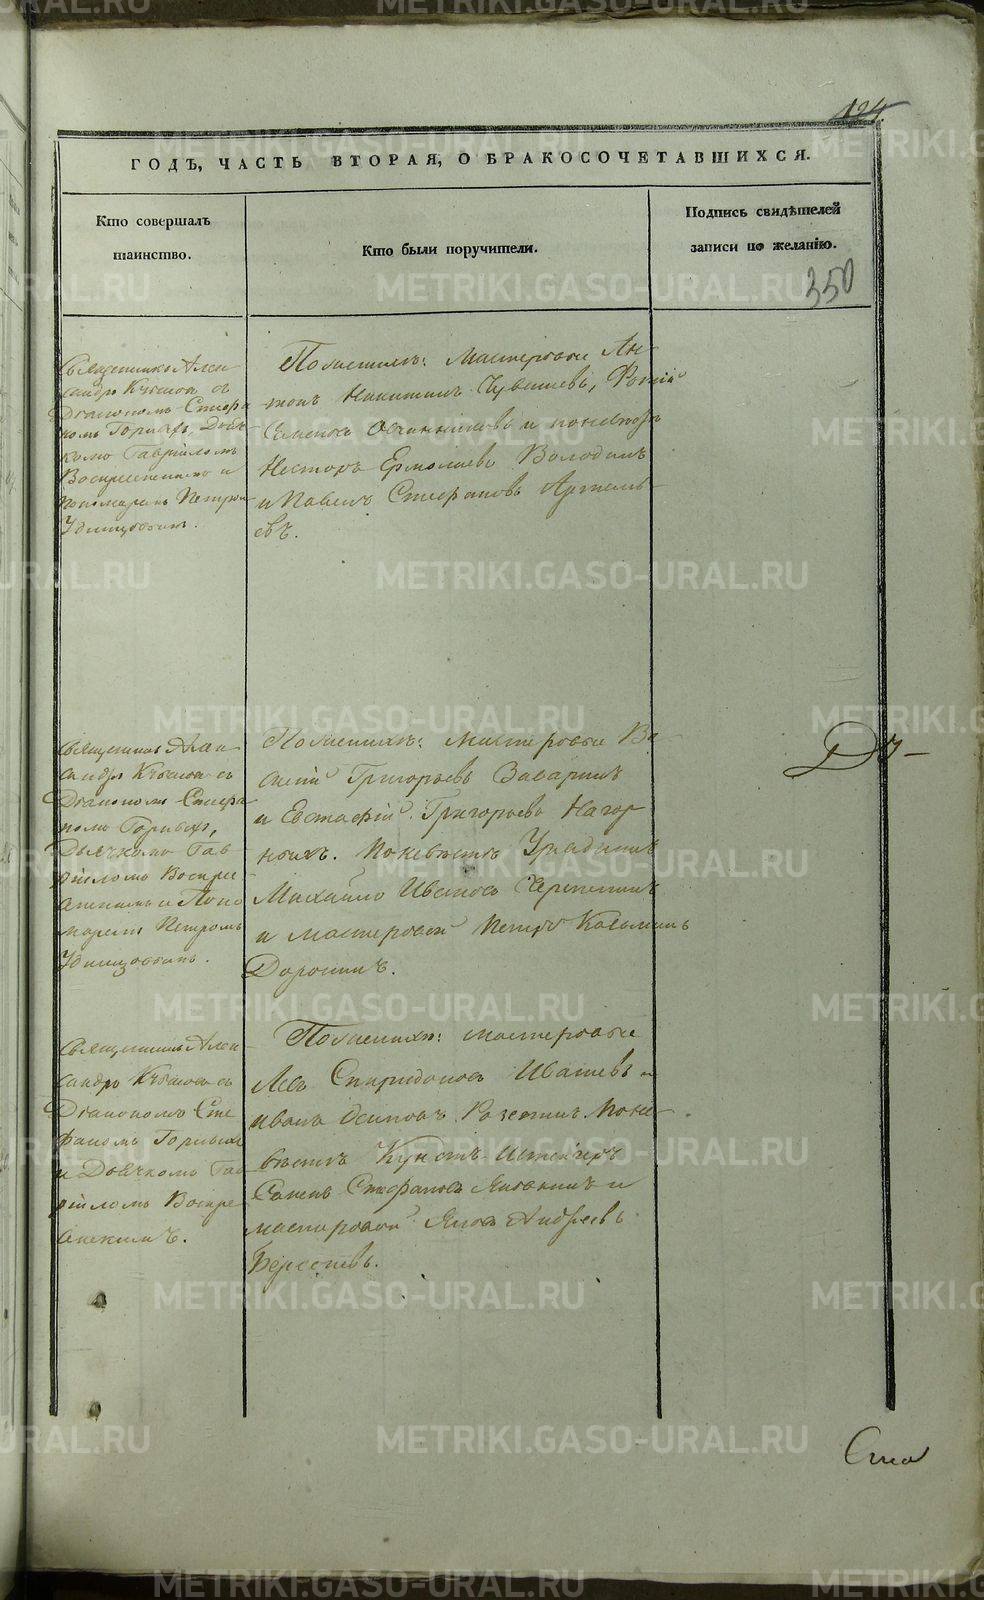 124
ГОДЪ, ЧАСТЬ ВТОРАЯ, О БРАКОСОЧЕТАВШИХСЯ.
Кто совершалъ
таинство.
Кто были поручители.
Подпись свидѣтелей
записи по желанію.
350
Священникъ Алек-
сандръ
Діакономъ Стефа
номъ Горныхъ, Дьяч-
комъ Гавріиломъ
Воскресенскимъ и
пономаремъ Петромъ
Удинцовымъ.
По женихѣ: мастеровые Ан-
тонъ Никитинъ Чувашевъ,
Семеновъ Овчинниковъ и по невѣстѣ
Несторъ Ермолаевъ Володинъ
и Павелъ Стефановъ Артемь-
евъ.
Священникъ Алек-
сандръ съ
Діакономъ Стефа
номъ Горныхъ,
Дьячкомъ Гав-
ріиломъ Воскре
сенскимъ и Поно
маремъ Петромъ
Удинцовымъ.
По женихѣ: мастеровые Ва-
силій Григорьевъ Заваринъ
и Евстафій Григорьевъ Нагор-
ныхъ. По невѣстѣ Урядникъ
Михайло Ивановъ Черепанинъ
и мастеровой Петръ Козьминъ
Доронинъ.
До-
Священникъ Алек
сандръ съ
Діакономъ Сте
фаномъ Горныхъ
и Дьячкомъ Гав
ріиломъ Воскре
сенскимъ.
По женихѣ: мастеровые
Левъ Спиридоновъ Ивашевъ и
Иванъ Осиповъ по не-
вѣстѣ Унтеръ-шейгеръ
Семенъ Стефановъ и
мастеровой Яковъ Андреевъ
Берсеневъ.
METRIKI.GASO-URAL.RU